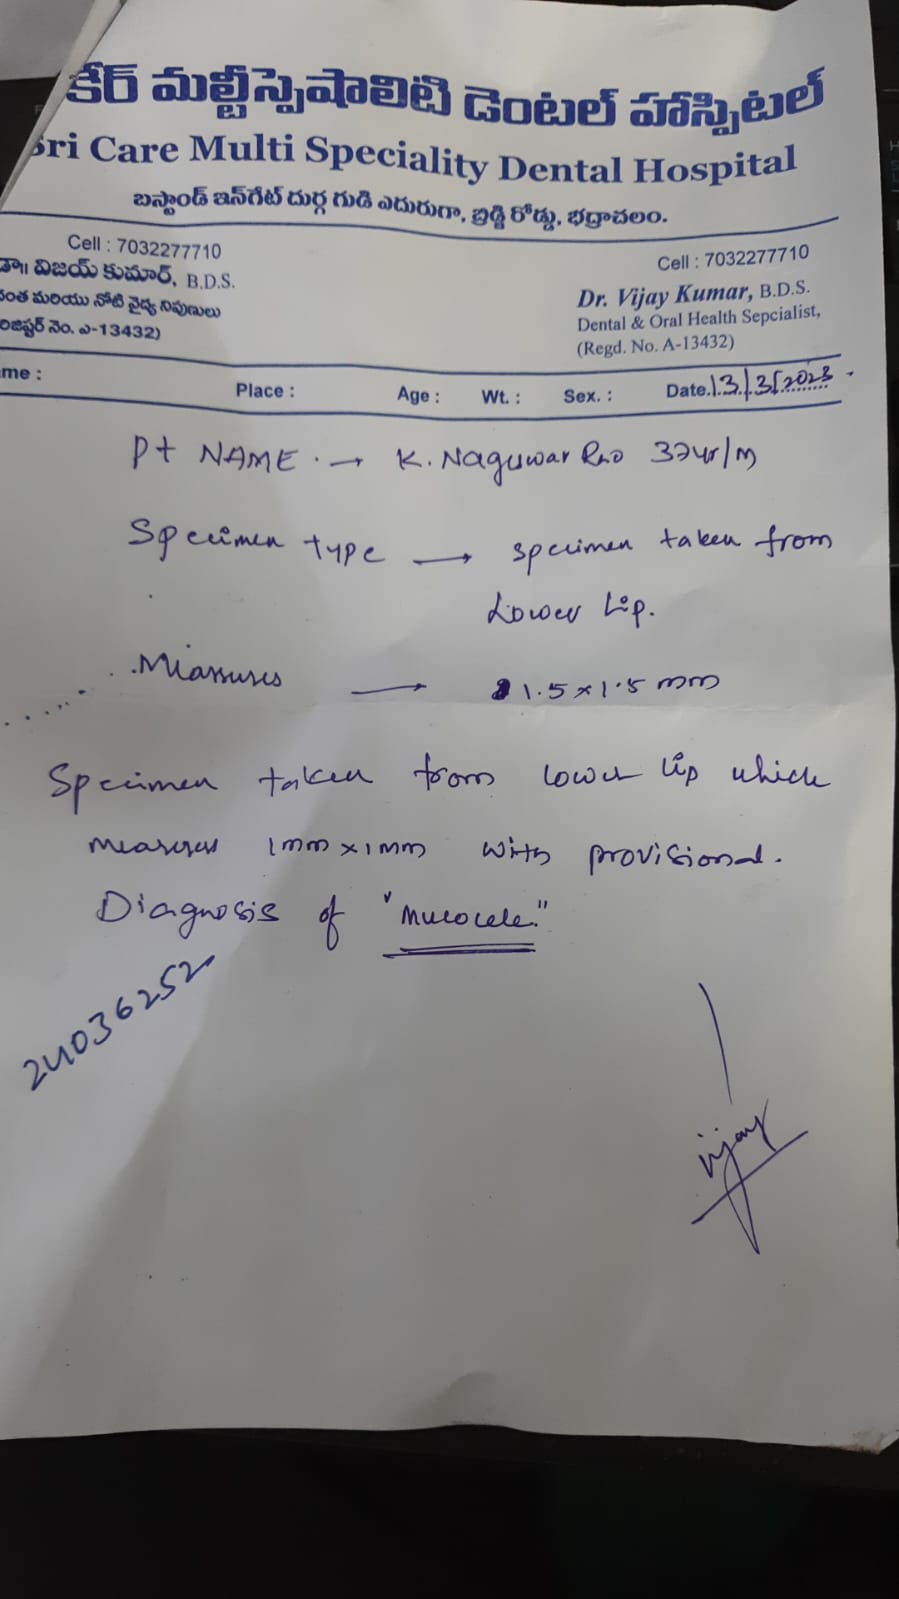 కేర్ మల్టీస్పెషాలిటి డెంటల్ హాస్పిటల్
Sri Care Multi Speciality Dental Hospital
బస్టాండ్ ఇన్‌గేట్ దుర్గ గుడి ఎదురుగా, బ్రిడ్జి రోడ్డు, భద్రాచలం.
Cell : 7032277710
డా॥ విజయ్ కుమార్, B.D.S.
దంత మరియు నోటి వైద్య నిపుణులు
రిజిష్టర్ నెం. ఎ-13432)
Cell : 7032277710
Dr. Vijay Kumar, B.D.S.
Dental & Oral Health Sepcialist,
(Regd. No. A-13432)
me : Place : Age : Wt. : Sex. : Date. 13/3/2023
Pt NAME . → K. Naguwar Rao 37yr/M
Specimen type → specimen taken from
Lower Lip.
Measures → 1.5 x 1.5 mm
Specimen taken from lower lip which
measures 1mm x 1mm with provisional.
Diagnosis of "mucocele."
24036252
vijay